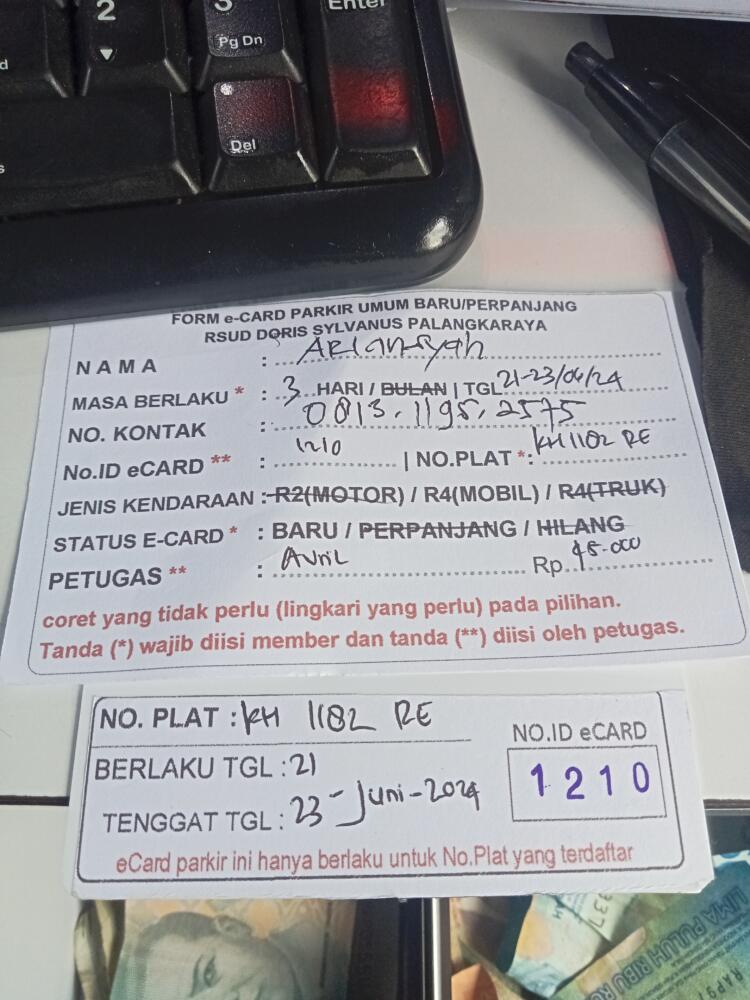 2
3
Enter
Pg Dn
Del
FORM e-CARD PARKIR UMUM BARU/PERPANJANG
RSUD DORIS SYLVANUS PALANGKARAYA
NAMA : Ariansyah
MASA BERLAKU * : 3 HARI / BULAN | TGL 21-23/06/24
NO. KONTAK : 0813.1195.2575
No.ID eCARD ** : 1210 | NO.PLAT *: KH 1182 RE
JENIS KENDARAAN : R2(MOTOR) / R4(MOBIL) / R4(TRUK)
STATUS E-CARD * : BARU / PERPANJANG / HILANG
PETUGAS ** : Avril Rp 45.000
coret yang tidak perlu (lingkari yang perlu) pada pilihan.
Tanda (*) wajib diisi member dan tanda (**) diisi oleh petugas.
NO. PLAT : KH 1182 RE
BERLAKU TGL : 21
TENGGAT TGL : 23-Juni-2024
NO.ID eCARD
1210
eCard parkir ini hanya berlaku untuk No.Plat yang terdaftar
LIMA PULUH RIBU